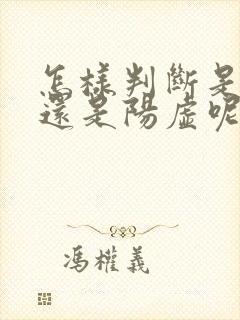 怎樣判斷是
還是陽虛呢
馮權義